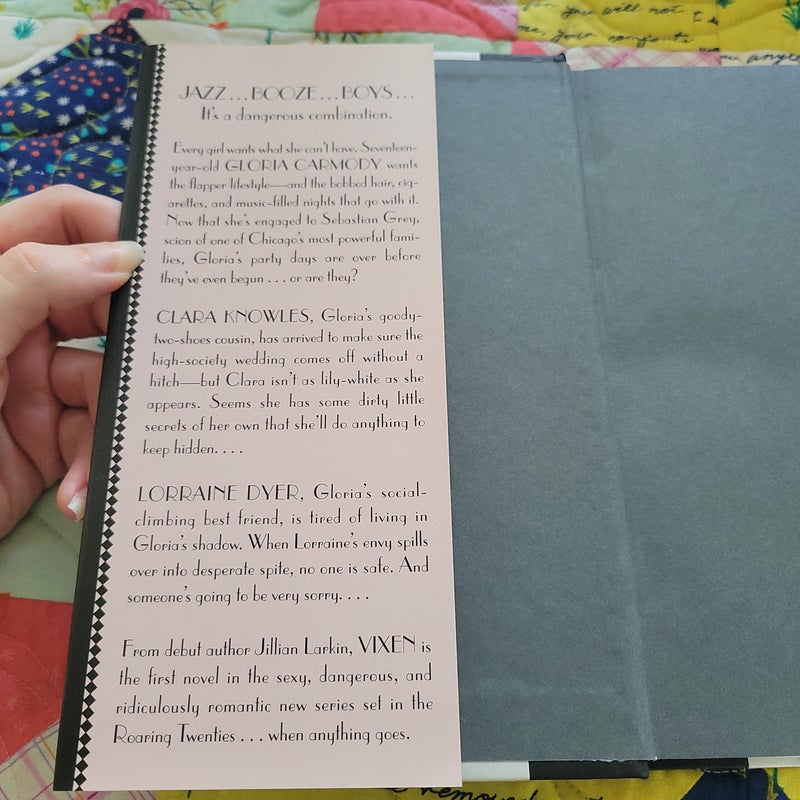 JAZZ...BOOZE...BOYS...
It's a dangerous combination.
Every girl wants what she can't have. Seventeen-
year-old GLORIA CARMODY wants
the flapper lifestyle—and the bobbed hair, cig-
arettes, and music-filled nights that go with it.
Now that she's engaged to Sebastian Grey,
scion of one of Chicago's most powerful fami-
lies, Gloria's party days are over before
they've even begun . . . or are they?
CLARA KNOWLES, Gloria's goody-
two-shoes cousin, has arrived to make sure the
high-society wedding comes off without a
hitch—but Clara isn't as lily-white as she
appears. Seems she has some dirty little
secrets of her own that she'll do anything to
keep hidden. . . .
LORRAINE DYER, Gloria's social-
climbing best friend, is tired of living in
Gloria's shadow. When Lorraine's envy spills
over into desperate spite, no one is safe. And
someone's going to be very sorry. . . .
From debut author Jillian Larkin, VIXEN is
the first novel in the sexy, dangerous, and
ridiculously romantic new series set in the
Roaring Twenties . . . when anything goes.
you will not
me, your